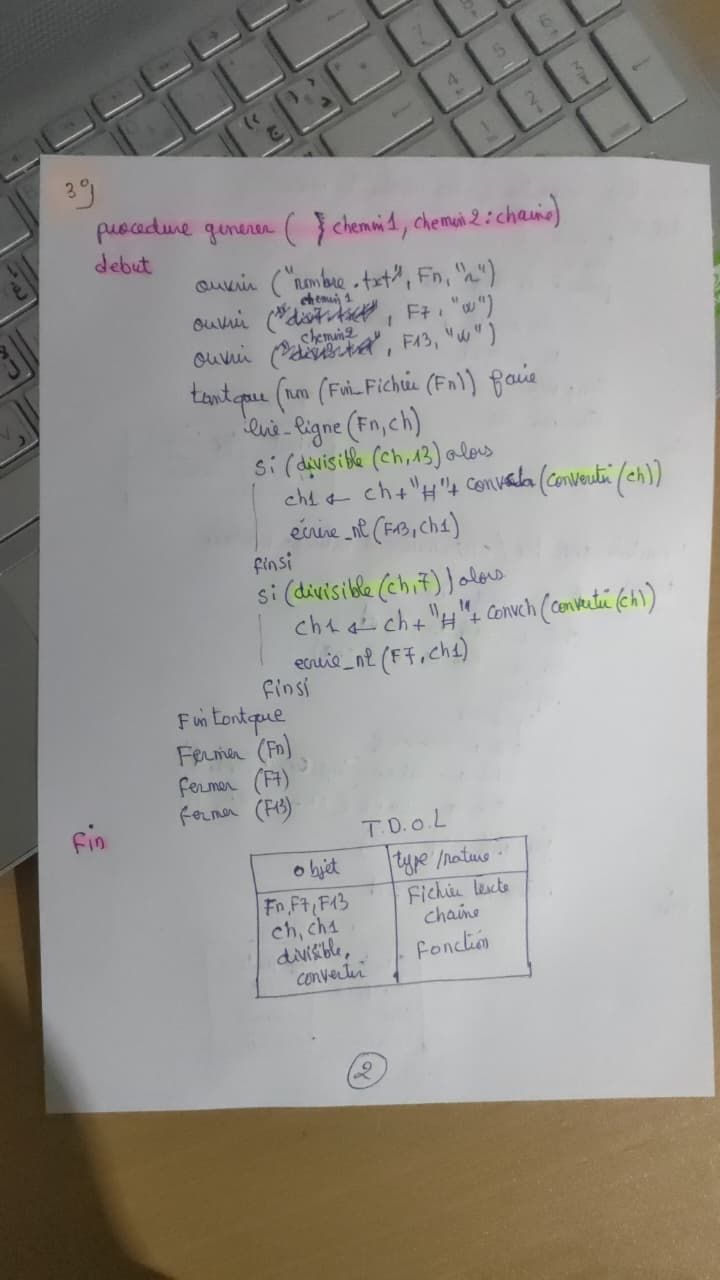 3°)
procedure generer ( } chemin1, chemin2 : chaine)
debut
ouvrir ("nombre.txt", Fn, "r")
chemin1
ouvrir ( , F7, "w")
chemin2
ouvrir ( , F13, "w")
tantque (non (Fin_Fichier (Fn)) faire
lire_ligne (Fn, ch)
si (divisible (ch, 13) alors
ch1 ← ch + "#" + convch (convertir (ch))
écrire_nl (F13, ch1)
finsi
si (divisible (ch, 7)) alors
ch1 ← ch + "#" + convch (convertir (ch)
ecrire_nl (F7, ch1)
finsi
Fin tantque
Fermer (Fn)
fermer (F7)
fermer (F13)
Fin
T.D.O.L
objet type/nature
Fn, F7, F13 Fichier texte
ch, ch1 chaine
divisible, Fonction
convertir
2